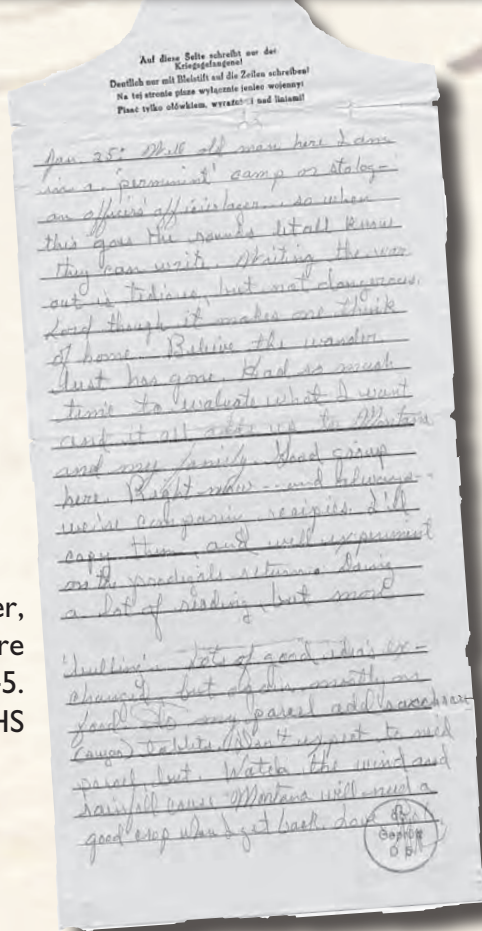 Auf diese Seite schreibt nur der
Kriegsgefangene!
Deutlich nur mit Bleistift auf die Zeilen schreiben!
Na tej stronie pisze wyłącznie jeniec wojenny!
Pisać tylko ołówkiem, wyraźnie i nad liniami!
Jan. 25: Well old man here I am
in a 'perminint' camp or stalag-
an officers' so when
this goes the rounds let all know
they can write. Waiting the war
out is tedious, but not dangerous.
Lord though it makes one think
of home. Believe the wander
lust has gone. Had so much
time to evaluate what I want
and it all adds up to Montana
and my family. Good group
here. Right now -- and
we're comparin recipies. I'll
copy them and will experiment
on the prodigals return. Doing
a lot of reading, but most
lots of good idea's ex-
changed but again mostly on
food. To my parcel add
(sugar) tablits. Don't expect to need
parcel, but. Watch the wind and
rainfall cause Montana will need a
good crop when I get back. Love
Geprüft
er,
re
-5.
HS